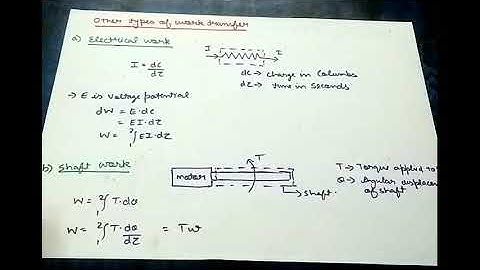 Other types of work transfer
a) Electrical work
I = dc/dτ
I I
dc → charge in Columbs
dτ → time in Seconds
→ E is Voltage potential
dW = E·dc
= EI·dτ
W = ₁²∫ EI·dτ
b) Shaft work
T
motor
Shaft
T → Torque applied to
θ → Angular displace
of shaft
W = ₁²∫ T·dθ
W = ₁²∫ T·dθ/dτ = Tω